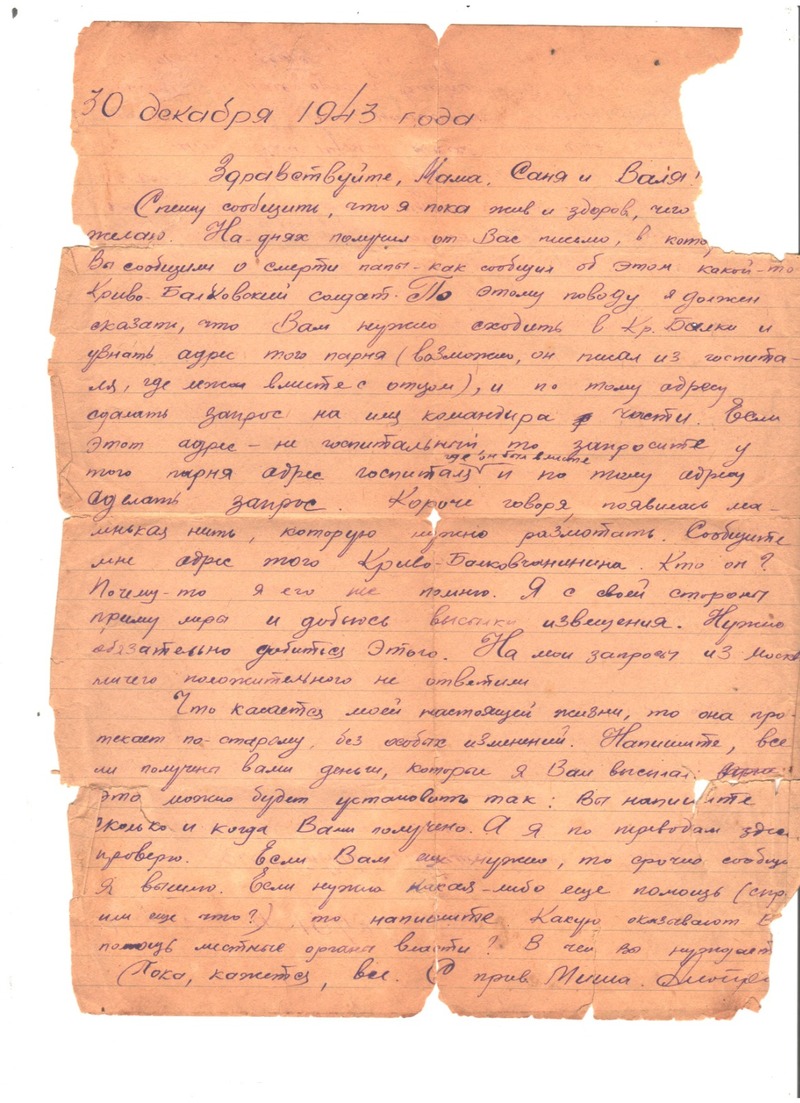 30 декабря 1943 года
Здравствуйте, Мама, Саня и Валя!
Спешу сообщить, что я пока жив и здоров, чего
желаю. На-днях получил от Вас письмо, в кото
Вы сообщили о смерти папы - как сообщил об этом какой-то
Криво-Балковский солдат. По этому поводу я должен
сказать, что Вам нужно сходить в Кр. Балки и
узнать адрес того парня (возможно, он писал из госпита-
ля, где лежал вместе с отцом), и по тому адресу
сделать запрос на имя командира части. Если
этот адрес - не госпитальный то запросите у
того парня адрес госпиталя где он был вместе и по тому адресу
сделать запрос. Короче говоря, появилась ма-
ленькая нить, которую нужно размотать. Сообщите
мне адрес того Криво-Балковчанинина. Кто он?
Почему-то я его не помню. Я с своей стороны
приму меры и добьюсь высылки извещения. Нужно
обязательно добиться этого. На мои запросы из Москв
ничего положительного не ответили
Что касается моей настоящей жизни, то она про-
текает по-старому, без особых изменений. Напишите, все
ли получены вами деньги, которые я Вам высылал.
это можно будет установить так: Вы напишите
сколько и когда Вами получено. А я по переводам здес
проверю. Если Вам еще нужно, то срочно сообщи
Я вышлю. Если нужна какая-либо еще помощь (спр
или еще что?) то напишите Какую оказывают В
помощь местные органа власти? В чем Вы нуждает
Пока, кажется, все. С прив. Миша.